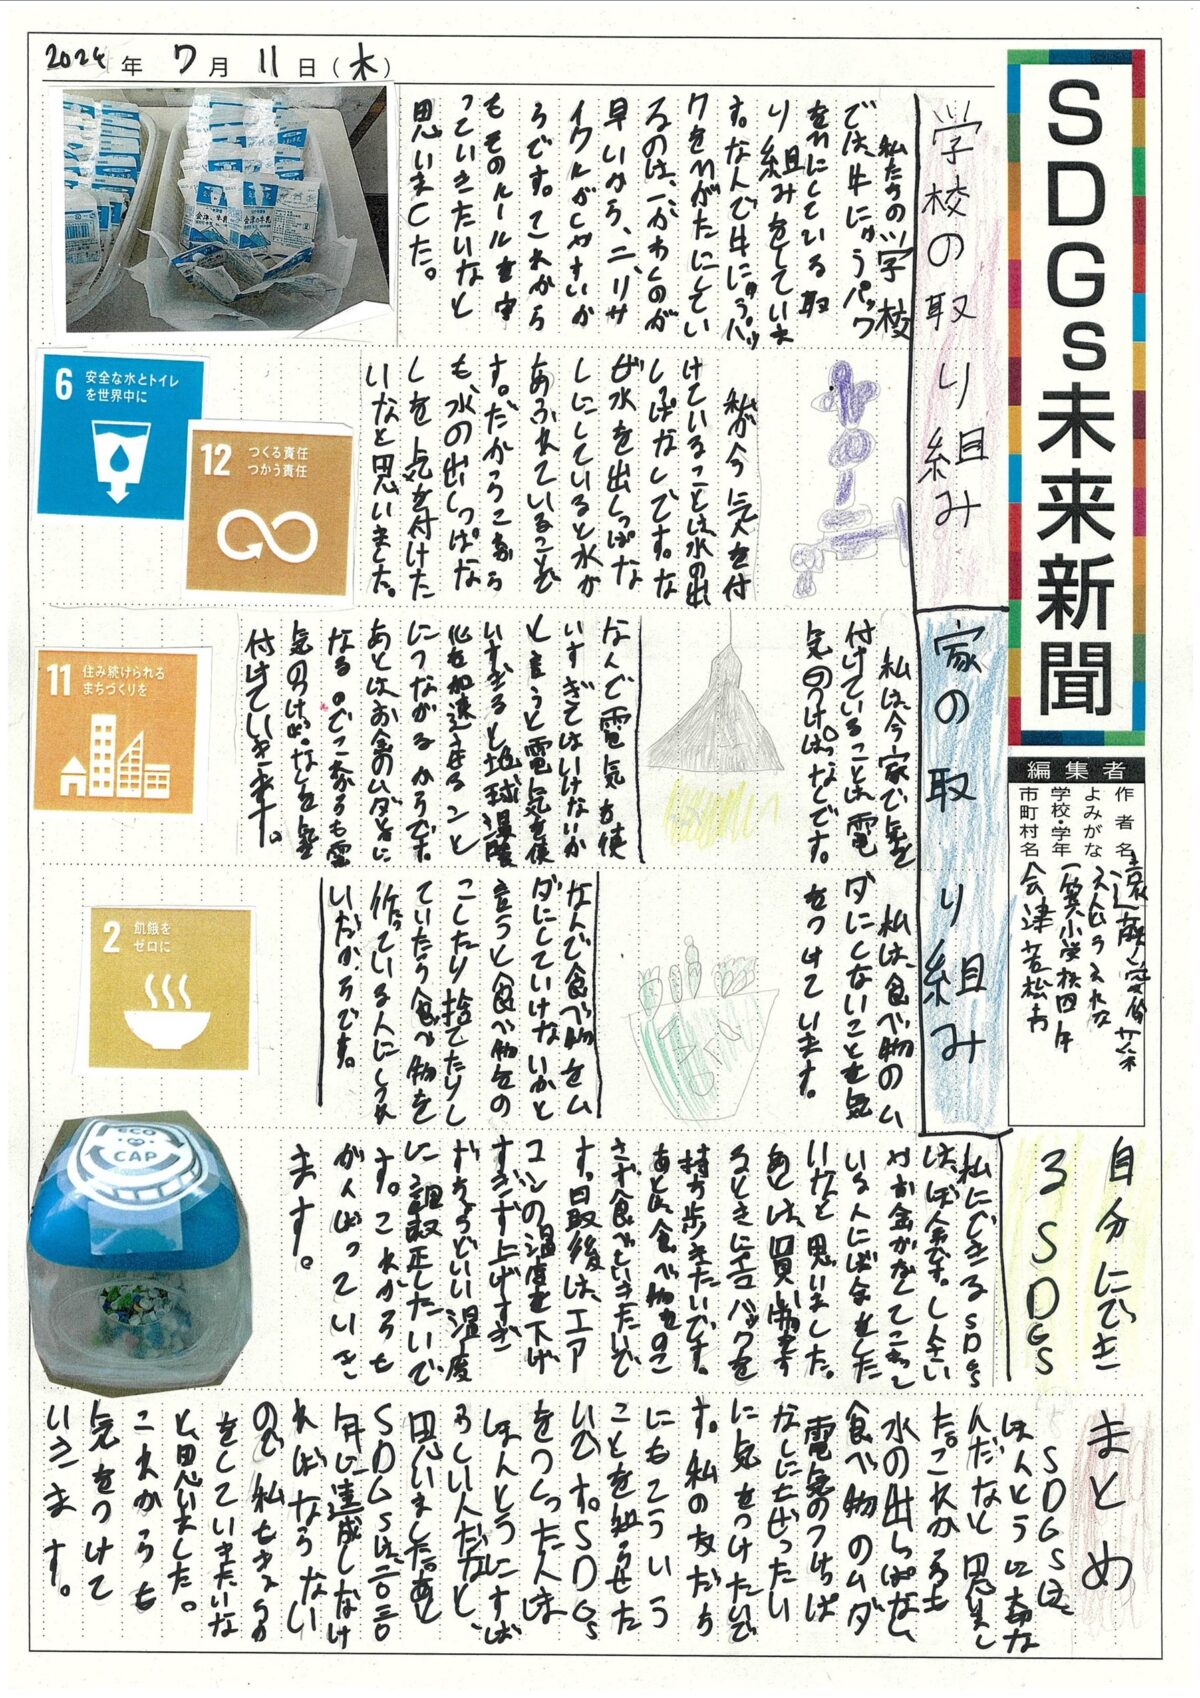 2024年 7月 11日(木)
SDGs未来新聞
編集者
作者名
よみがな
学校・学年 一箕小学校四年
市町村名 会津若松市
学校の取り組み
私たちの学校
では、牛にゅうパック
をれにしている取
り組みをしていま
す。なんで牛にゅうパッ
クをれがたにしてい
るのは、一、かわくのが
早いから、二、リサ
イクルがしやすいか
らです。これから
もそのルールを守
っていきたいなと
思いました。
会津の牛乳
私が今気を付
けていることは水の出
しっぱなしです。な
ぜ水を出しっぱな
しにしていると水が
あふれていることで
す。だからこれから
も、水の出しっぱな
しを気を付けた
いなと思いました。
6 安全な水とトイレ
を世界中に
12 つくる責任
つかう責任
家の取り組み
私は、今家で気を
付けていることは電
気のつけっぱなしです。
なんで電気を使
いすぎてはいけないか
と言うと電気を使
いすぎると地球温暖
化を加速させること
につながるからです。
あとはお金のムダに
なるのでこれからも電
気のつけぱなしを気を
付けていきます。
11 住み続けられる
まちづくりを
私は、食べ物のム
ダにしないことを気
をつけています。
なんで食べ物をム
ダにしていけないかと
言うと食べ物をの
こしたり捨てたりし
ていたら食べ物を
作っている人にしつれ
いだからです。
2 飢餓を
ゼロに
自分にでき
るSDGs
私にできるSDGs
は、ぼ金です。しょうらい
はお金がなくてこまって
いる人にぼ金をした
いなと思いました。
あとは、買い物をす
るときにエコバックを
持ち歩きたいです。
あとは、食べ物をのこ
さず食べていきたいで
す。最後は、エア
コンの温度を下げ
すぎず上げすぎ
ずちょうどいい温度
に調整したいで
す。これからも
がんばっていき
ます。
ECO
CAP
まとめ
SDGsは、
ほんとうに大切な
んだなと思いまし
た。これからも
水の出しっぱなし、
食べ物のムダ
電気のつけっぱ
なしにぜったい
に気をつけたいで
す。私の友だち
にもこういう
ことを知らせた
いです。SDGs
をつくった人は
ほんとうにすば
らしい人だなと、
思いました。あと
SDGsは、二〇三〇
年に達成しなけ
ればならない
ので私もきょう力
をしていきたいな
と、思いました。
これからも
気をつけて
いきます。